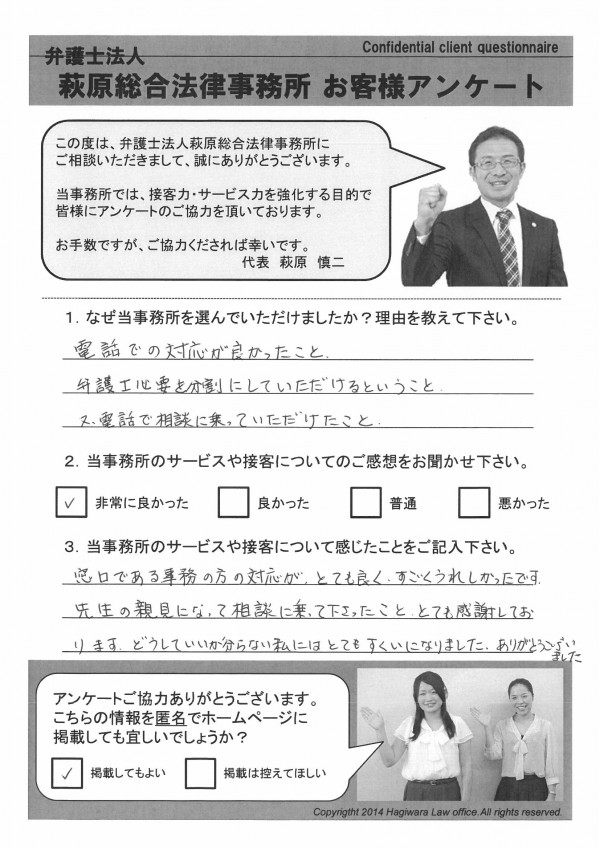 Confidential client questionnaire
弁護士法人
萩原総合法律事務所 お客様アンケート
この度は、弁護士法人萩原総合法律事務所に
ご相談いただきまして、誠にありがとうございます。
当事務所では、接客力・サービス力を強化する目的で
皆様にアンケートのご協力を頂いております。
お手数ですが、ご協力くだされば幸いです。
代表 萩原 慎二
1. なぜ当事務所を選んでいただけましたか？理由を教えて下さい。
電話での対応が良かったこと.
弁護士必要を分割にしていただけるということ.
又、電話で相談に乗っていただけたこと.
2. 当事務所のサービスや接客についてのご感想をお聞かせ下さい。
✓ 非常に良かった 良かった 普通 悪かった
3. 当事務所のサービスや接客について感じたことをご記入下さい。
窓口である事務の方の対応が、とても良く、すごくうれしかったです.
先生の親見になって相談に乗って下さったこと、とても感謝してお
ります. どうしていいか分らない私にはとてもすくいになりました. ありがとうござい
ました
アンケートご協力ありがとうございます。
こちらの情報を匿名でホームページに
掲載しても宜しいでしょうか？
✓ 掲載してもよい 掲載は控えてほしい
Copyright 2014 Hagiwara Law office.All rights reserved.